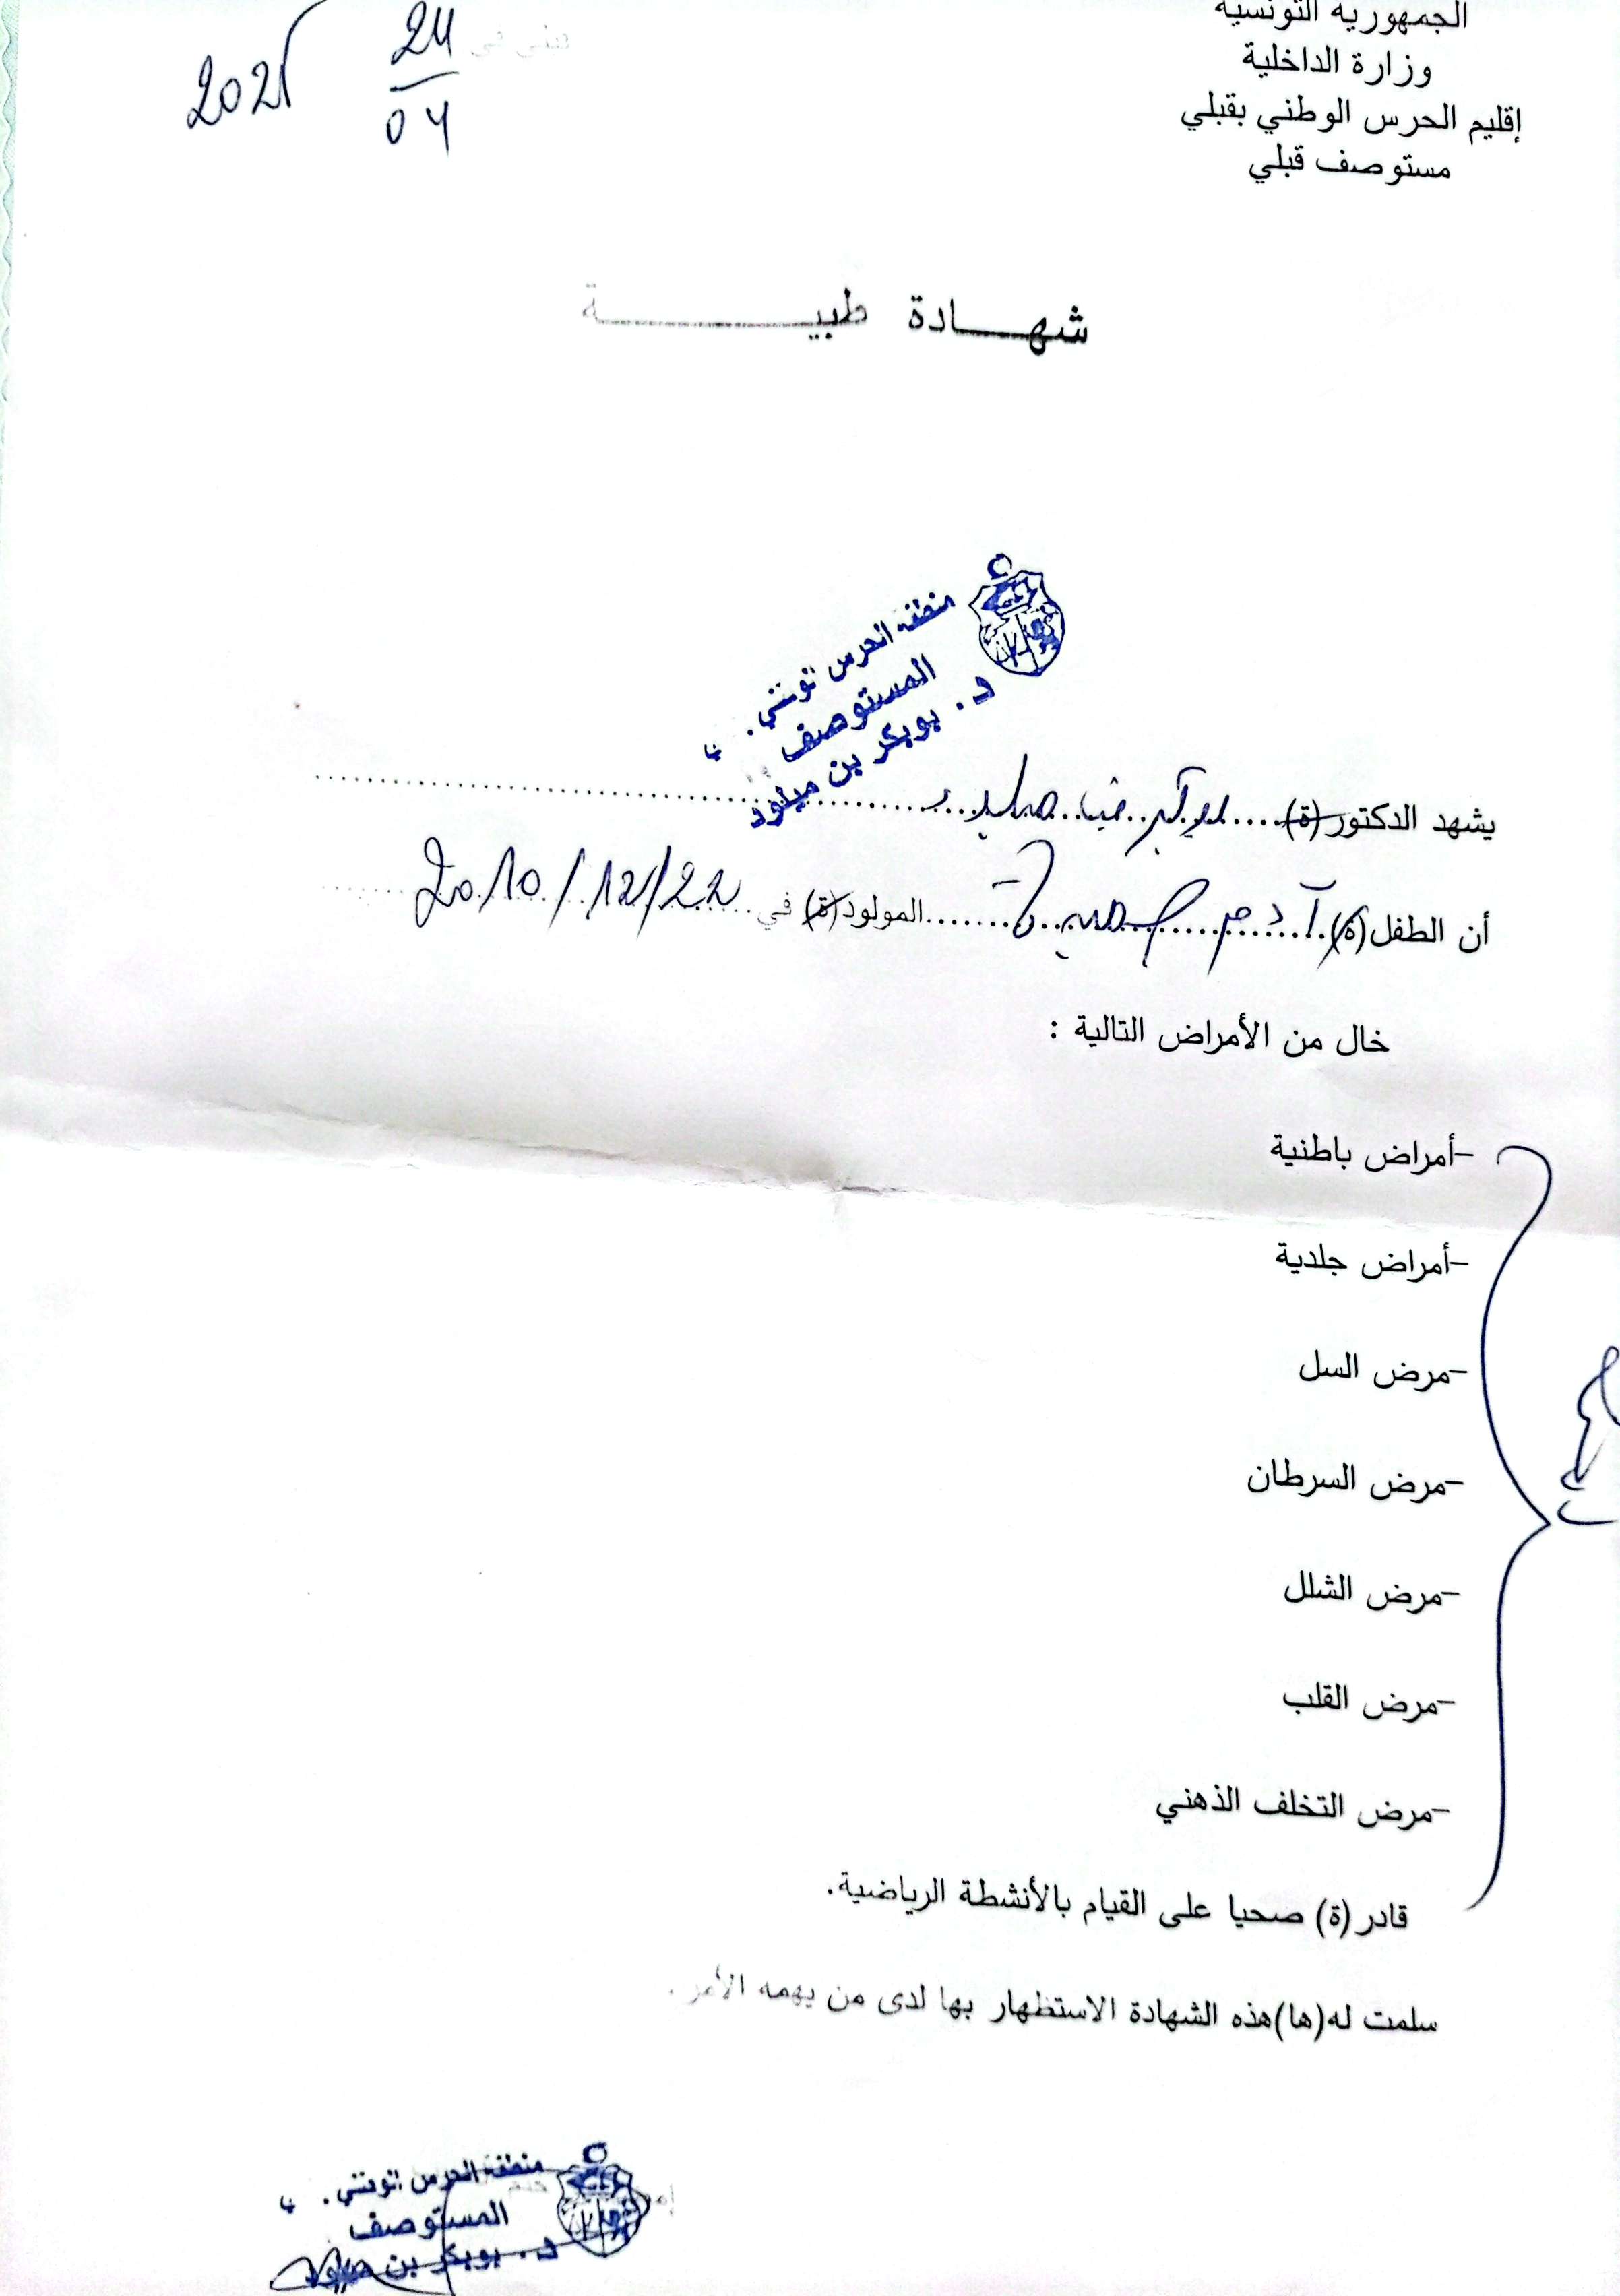 الجمهورية التونسية
وزارة الداخلية
إقليم الحرس الوطني بقبلي
مستوصف قبلي
قبلي في 24/04 2025
شهــادة طبيـــــة
منطقة الحرس
المستوصف
د. بوبكر بن ميلود
يشهد الدكتور(ة)....بوبكر بن ميلود......
أن الطفل(ة)..آدم........المولود(ة) في..2010/12/22
خال من الأمراض التالية :
-أمراض باطنية
-أمراض جلدية
-مرض السل
-مرض السرطان
-مرض الشلل
-مرض القلب
-مرض التخلف الذهني
قادر(ة) صحيا على القيام بالأنشطة الرياضية.
سلمت له(ها)هذه الشهادة الاستظهار بها لدى من يهمه الأمر.
منطقة الحرس
المستوصف
د. بوبكر بن ميلود